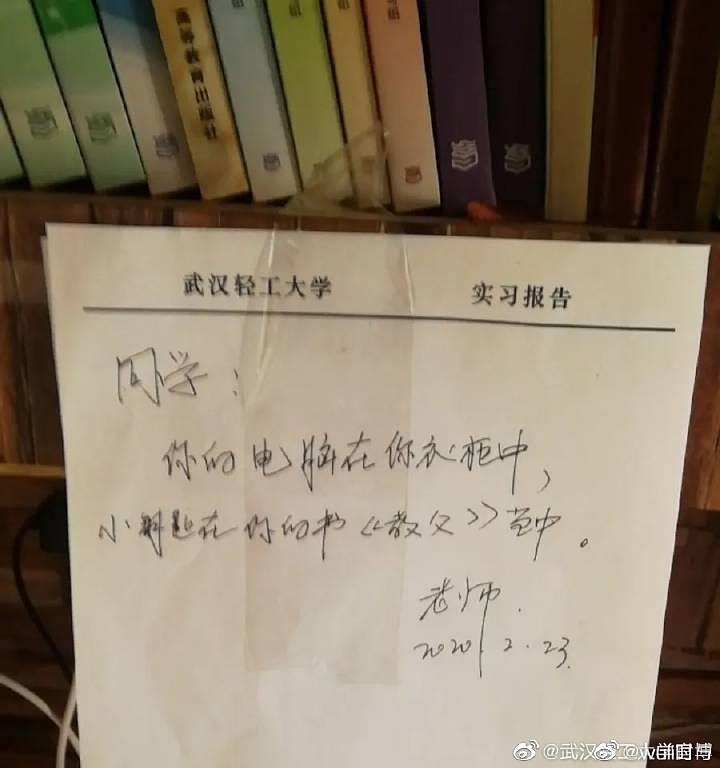 高等教育出版社
武汉轻工大学 实习报告
同学:
你的电脑在你衣柜中,
小钥匙在你的书《教父》当中。
老师.
2020.2.23.